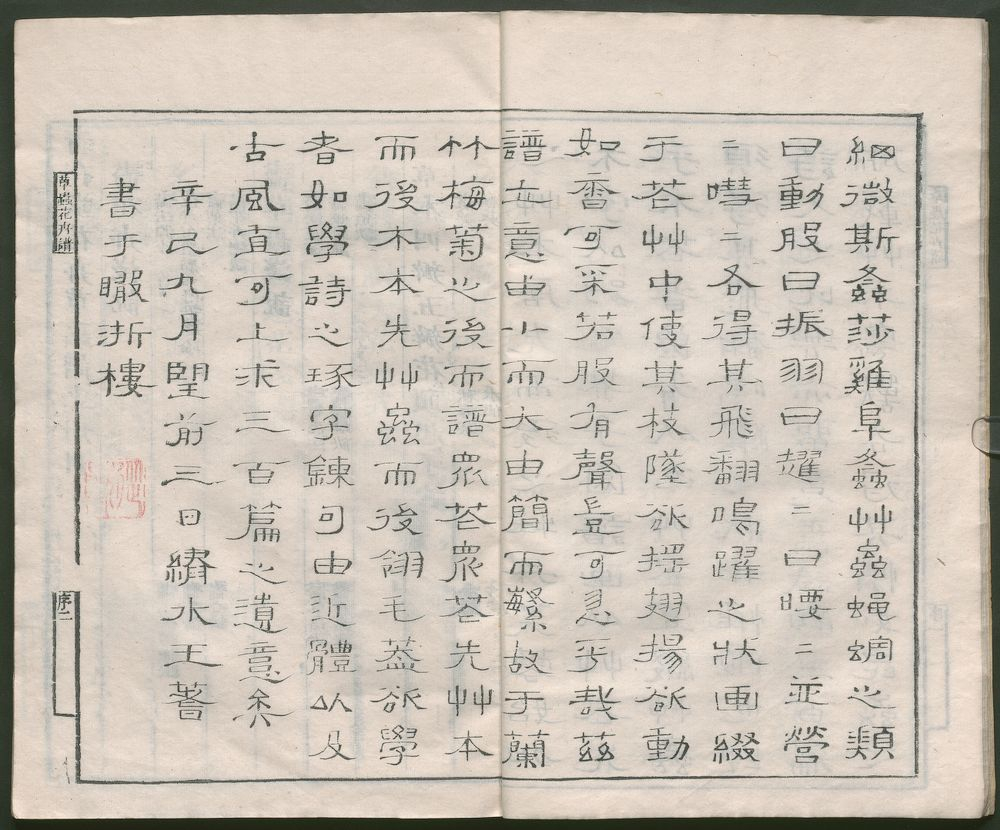 細微斯螽莎雞阜螽艸蟲蠅蜩之類
曰動股曰振羽曰趯二曰喓二並營
二嘒二各得其飛翻鳴躍之狀画綴
于芲艸中使其枝墜欲搖翅揚欲動
如香可采若股有聲豈可忽乎哉茲
譜安意由小而大由簡而繁故于蘭
竹梅菊之後而譜眾芲眾芲先艸本
而後木本先艸蟲而後翎毛葢欲學
者如學詩之琢字鍊句由近體以及
古風直可上求三百篇之遺意矣
辛巳九月望前三日繡水王蓍
書于浙樓
草蟲花卉譜
序二